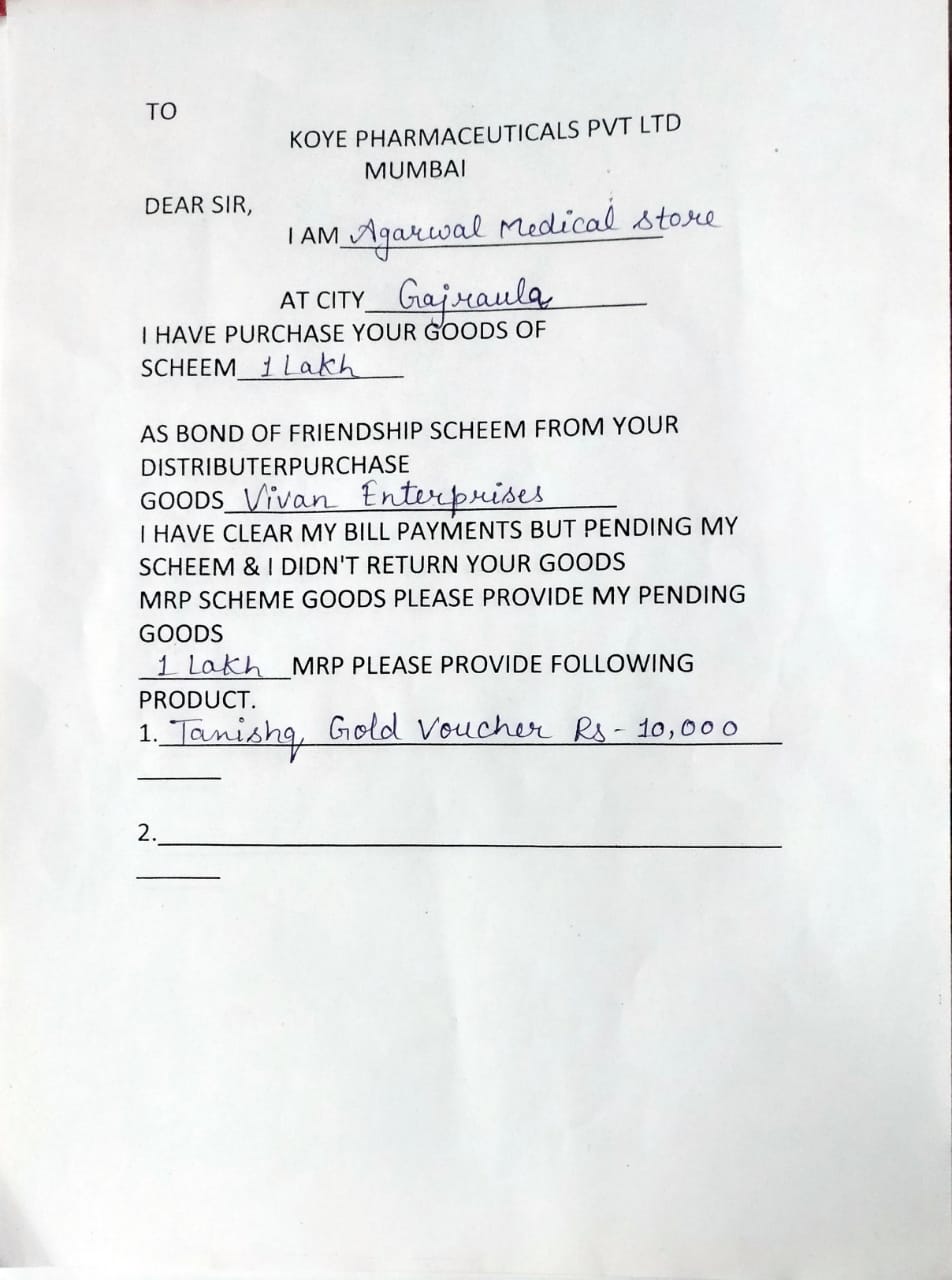 TO
KOYE PHARMACEUTICALS PVT LTD
MUMBAI
DEAR SIR,
I AM Agarwal Medical Store
AT CITY Gajraula
I HAVE PURCHASE YOUR GOODS OF
SCHEEM 1 Lakh
AS BOND OF FRIENDSHIP SCHEEM FROM YOUR
DISTRIBUTERPURCHASE
GOODS Vivan Enterprises
I HAVE CLEAR MY BILL PAYMENTS BUT PENDING MY
SCHEEM & I DIDN'T RETURN YOUR GOODS
MRP SCHEME GOODS PLEASE PROVIDE MY PENDING
GOODS
1 Lakh MRP PLEASE PROVIDE FOLLOWING
PRODUCT.
1. Tanishq Gold Voucher Rs - 10,000
2.